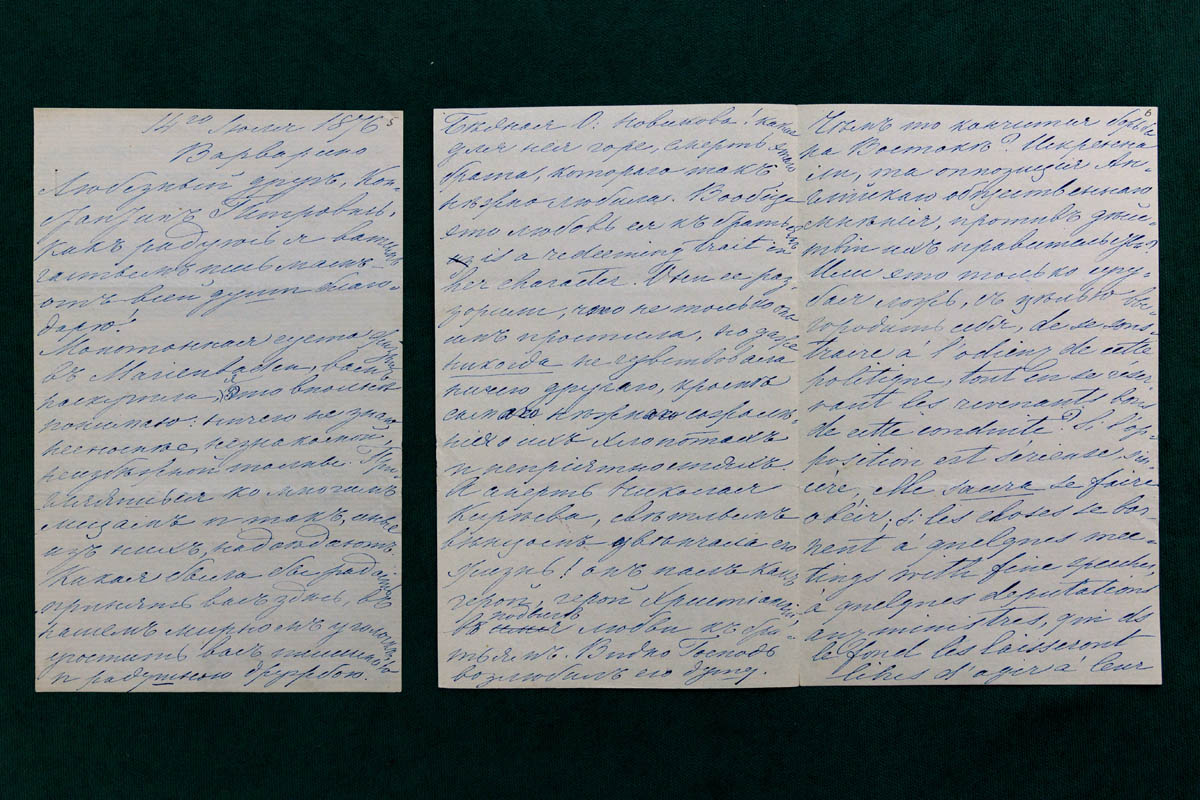 14го Июля 1876 5
Варварино
Любезный другъ, Кон-
стантинъ Петровичъ,
Какъ радуюсь я вашимъ
частымъ письмамъ
отъ всей души благо-
дарю!
Монотонная суета жизни
въ Marienbadѣ, васъ
раскурила, это вполнѣ
понимаю: ничего не знаю
несноснѣе, незнакомой,
толпы. При-
глядѣться ко многимъ
лицамъ и такъ, иные
изъ нихъ, надоѣдаютъ.
Какая была бы рада
принять васъ здѣсь, въ
нашемъ мирномъ уголкѣ
угостить васъ тишиной
и радушною дружбою.
Бѣдная О: Новикова! какое
для нея горе, смерть этого
брата, котораго такъ
нѣжно любила. Вообще
эта любовь ея къ братьямъ
is a redeeming trait in
her character. Они ее раз-
зорили, чего не только она
имъ простила, но даже
никогда не чувствовала
ничего другаго, кромѣ
самаго нѣжнаго сожалѣ-
нія о ихъ хлопотахъ
и непріятностяхъ
А смерть Николая
Кирѣева, свѣтлымъ
вѣнцомъ увѣнчала его
жизнь! онъ палъ какъ
герой, герой Христіанскій,
подвигъ
въ любви къ бра-
тьямъ. Видно Господь
возлюбилъ его душу.
6
Чѣмъ то кончится борьба
на Востокѣ? Искренна
ли, та оппозиція Ан-
глійскаго общественнаго
мнѣнія, противъ дѣй-
ствій ихъ правительства?
Или это только гру-
бая ложь, съ цѣлью вы-
городить себя, de se sous-
traire à l'odieux de cette
politique, tout en se reser
vant les revenants bons
de cette conduite? Si l'op-
position est sérieuse, sin-
cère, elle saura se faire
obéir; si les choses se bor
nent à quelques mee-
tings with fine speeches,
à quelques deputations
aux ministres, qui ds
le fond les laisseront
libres d'agir à leur